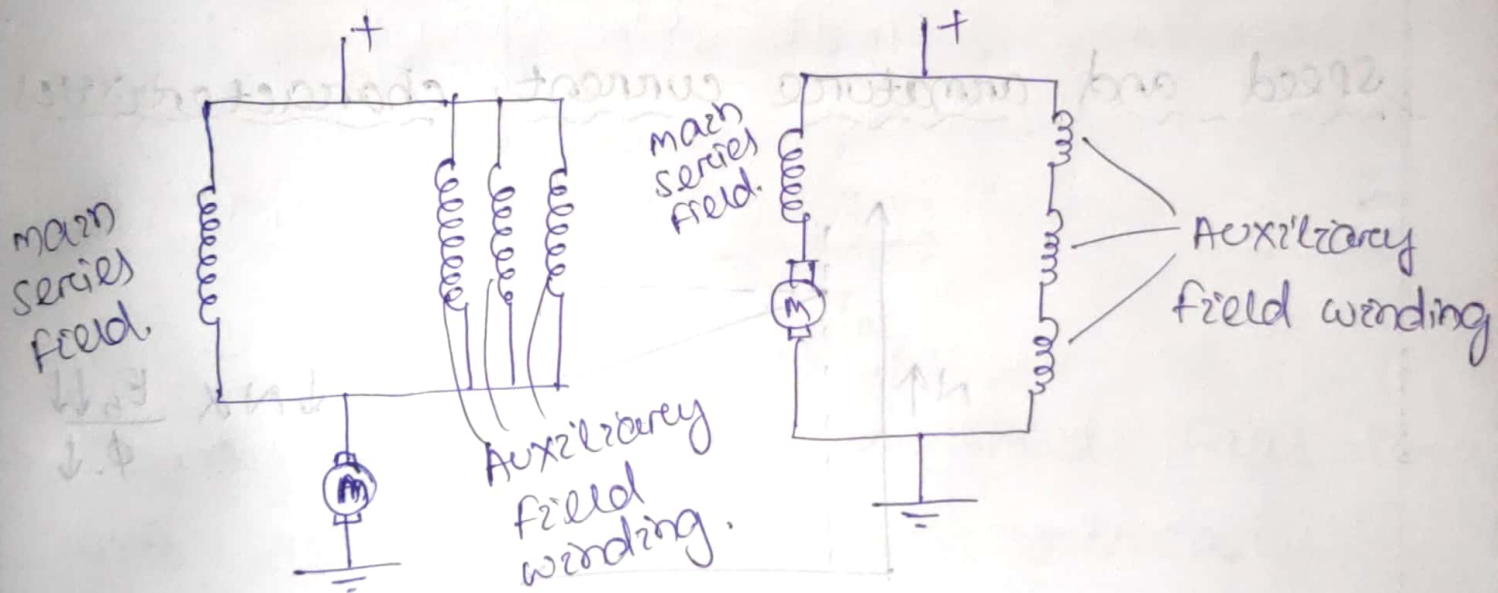 +
main
series
field.
M
Auxiliary
field
winding.
+
main
series
field.
M
Auxiliary
field winding